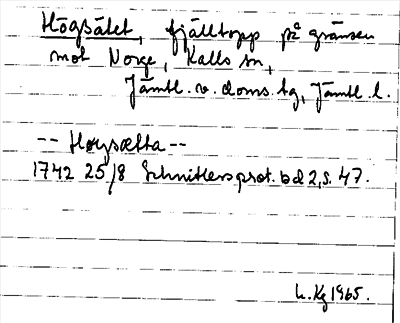 Högsätet, fjälltopp på gränsen
mot Norge, Kalls sn,
Jämtl. v. doms. tg, Jämtl. l.
-- Høgsætta --
1742 25/8 Schnitlers prot. bd 2, s. 47.
L. Kg 1965.